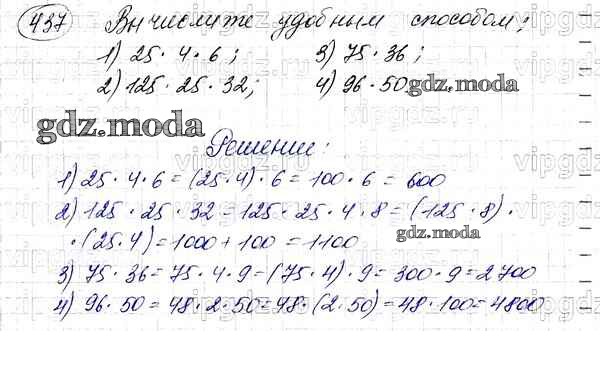 437 Вычислите удобным способом:
1) 25 · 4 · 6; 3) 75 · 36;
2) 125 · 25 · 32; 4) 96 · 50.
gdz.moda
gdz.moda
Решение:
1) 25 · 4 · 6 = (25 · 4) · 6 = 100 · 6 = 600
2) 125 · 25 · 32 = 125 · 25 · 4 · 8 = (125 · 8) ·
· (25 · 4) = 1000 + 100 = 1100
gdz.moda
3) 75 · 36 = 75 · 4 · 9 = (75 · 4) · 9 = 300 · 9 = 2700
4) 96 · 50 = 48 · 2 · 50 = 48 · (2 · 50) = 48 · 100 = 4800